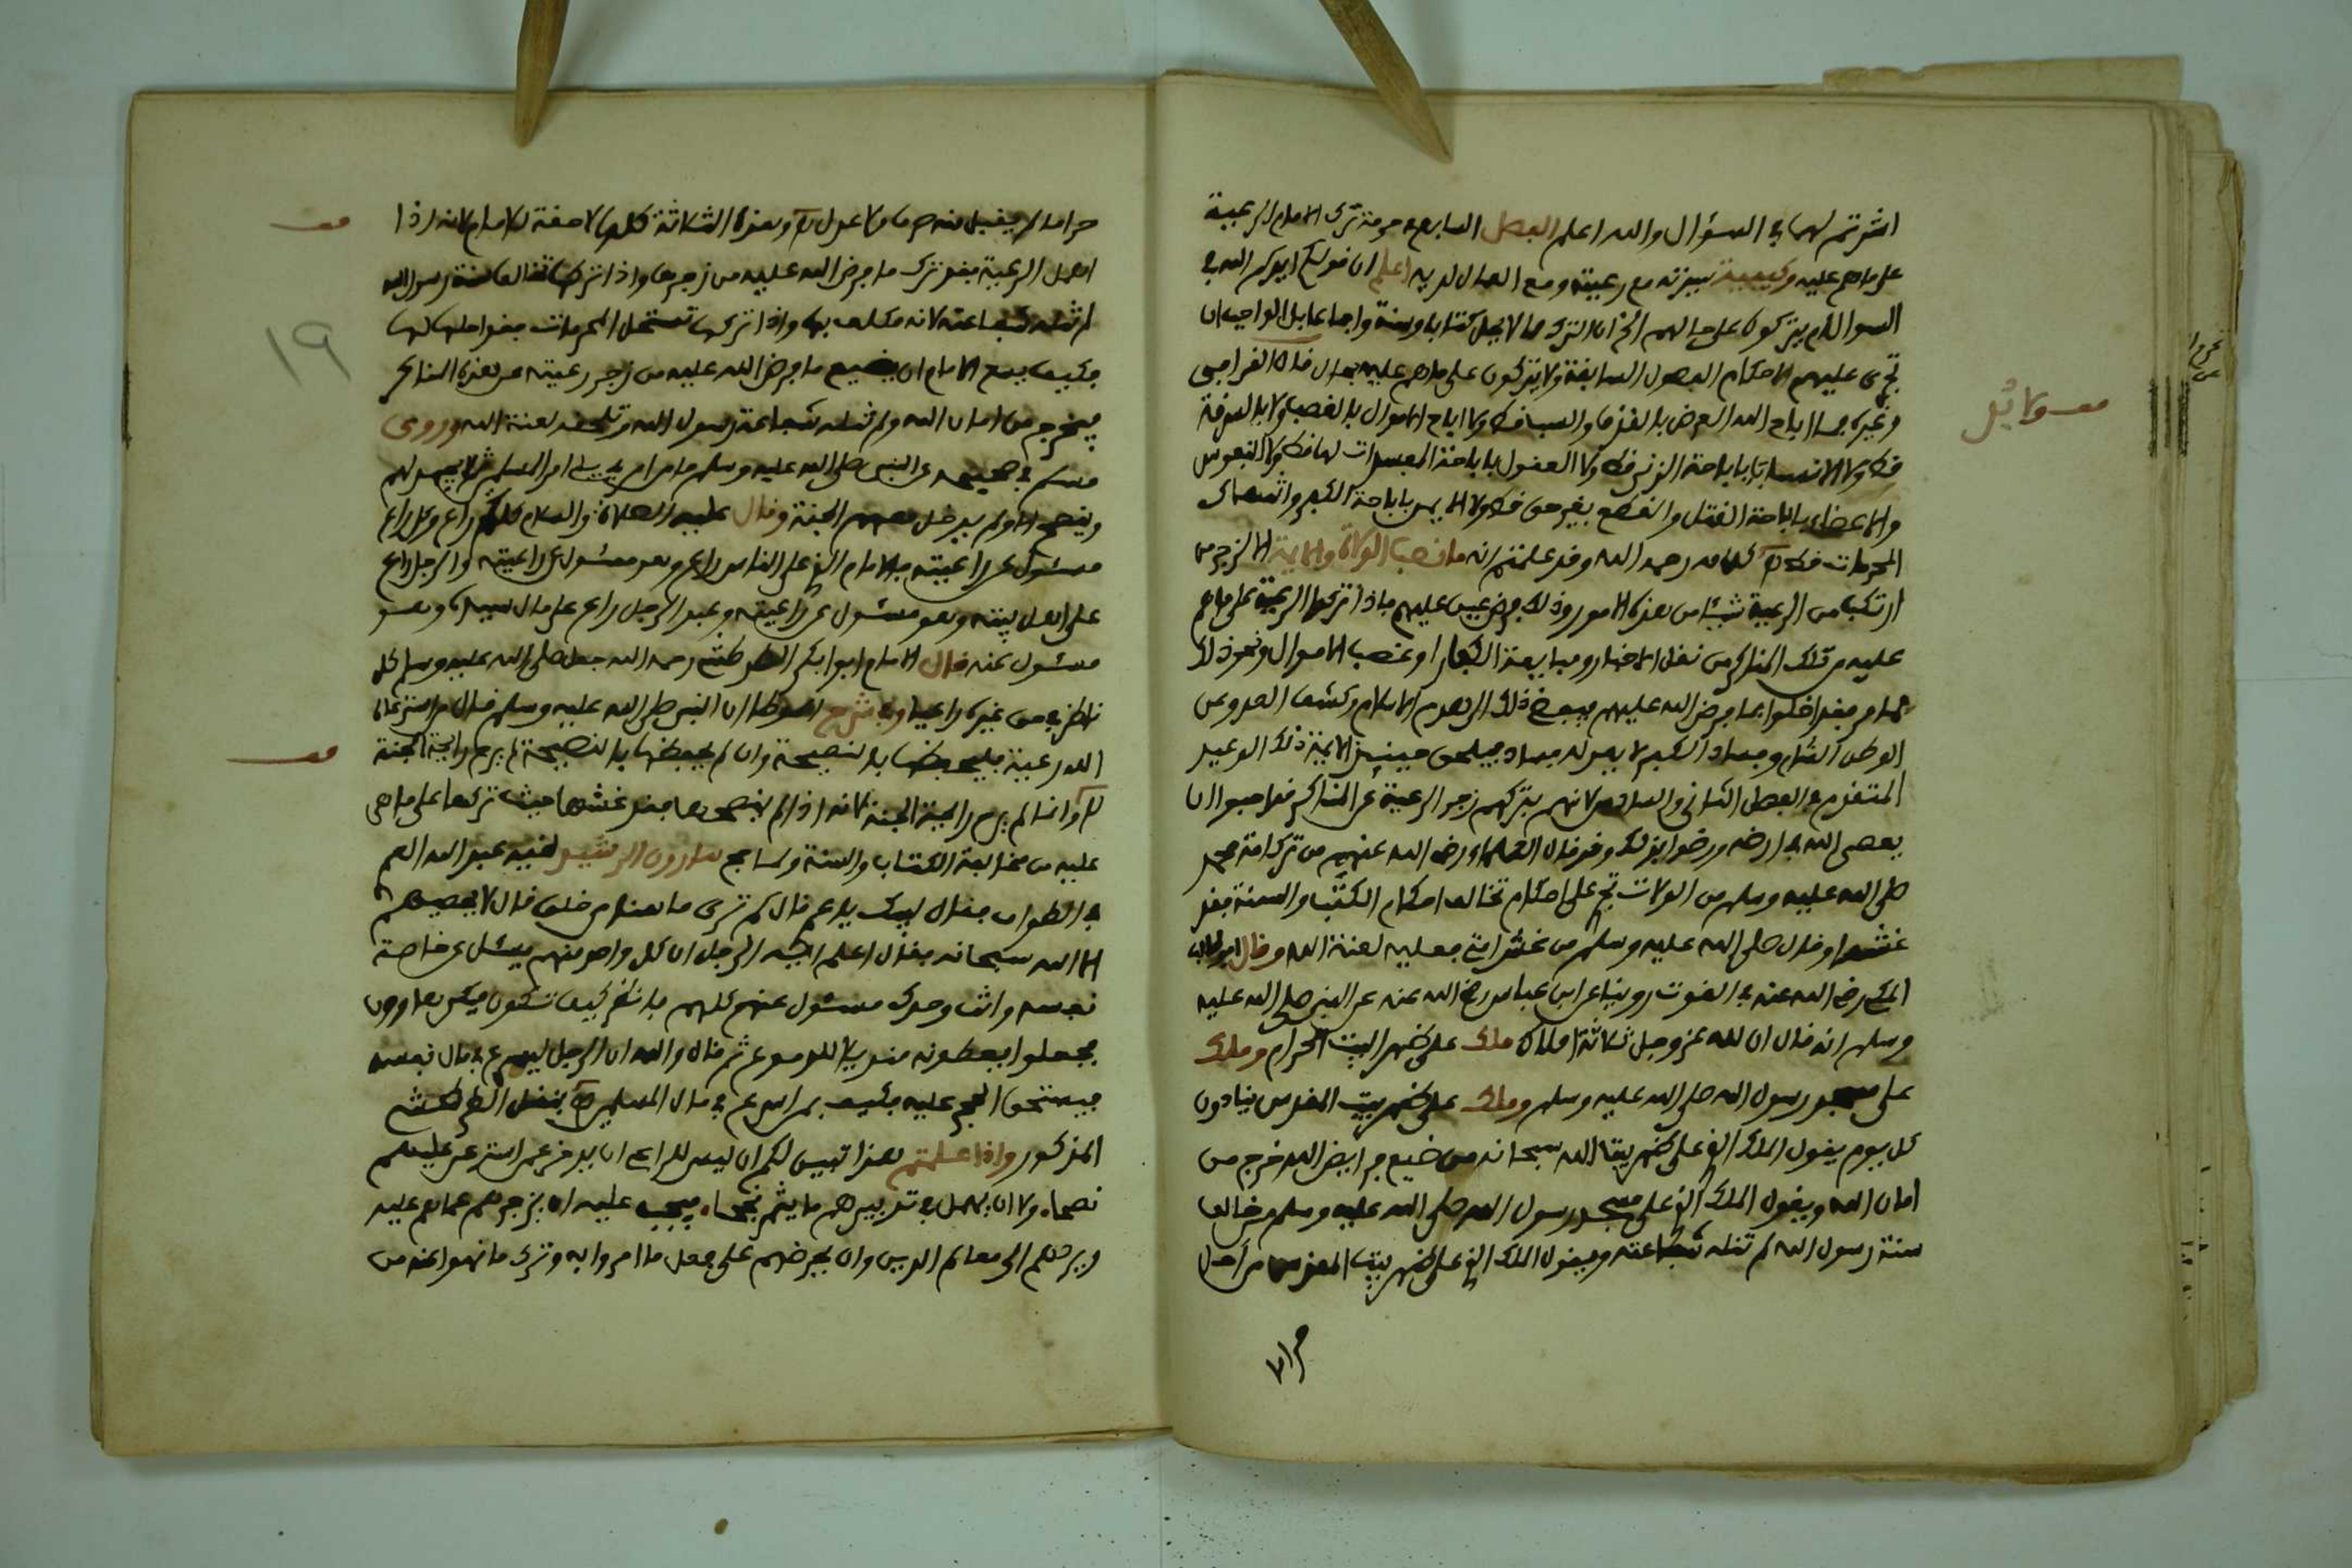 اشرتم لهما في السؤال والله اعلم الفصل السابع في حرمة ترك الامام الرعية
على ما هم عليه وكيفية سيرته مع رعيته ومع العمال لديه اعلم ان قولكم ايدكم الله في
السؤال ام يتركون على حالهم الخ ان الترك مما لا يحل كتابا وسنة واجماعا بل الواجب ان
تجرى عليهم الاحكام الفصول السابقة ولا يتركون على ما هم عليه بحال قال القرافي
وغيره ما اباح الله العرض بالقذف والسب قط ولا اباح الاموال بالغصب ولا بالسرقة
قط ولا الانساب باباحة الزنى قط ولا العقول باباحة المفسدات لها قط ولا النفوس
والاعضاء باباحة القتل والقطع بغير حق قط ولا الايمن باباحة الكفر وانتهاك
المحرمات قط كلامه رحمه الله وقد علمتم انه ما نصب الولاة والايمة الا لزجر من
ارتكب من الرعية شيئا من هذه الامور وذلك فرض عين عليهم فاذا تركوا الرعية على ما هم
عليه من تلك المناكر من نقل الاخبار ومبايعة الكفار او غصب الاموال ونحو ذلك
مما مر فقد اخلوا بما فرض الله عليهم فيفضى ذلك الى هدم الاسلام وكشف العدو عن
الوطن التام وفساد الكبير لا يعدله فساد فيلحق حينئذ الايمة ذلك الوعيد
المتقدم في الفصل الثاني والسادس لانهم بتركهم زجر الرعية عن المناكر قد احبوا ان
يعصى الله في ارضه ورضوا بذلك وقد قال العلماء رضي الله عنهم من ترك امة محمد
صلى الله عليه وسلم من الولات تجرى على احكام تخالف احكام الكتب والسنة فقد
غشها وقال صلى الله عليه وسلم من غش امتي فعليه لعنة الله وقال ابو طالب
المكي رضي الله عنه في القوت روينا عن ابن عباس رضي الله عنه عن النبي صلى الله عليه
وسلم انه قال ان لله عز وجل ثلاثة املاك ملك على ظهر البيت الحرام وملك
على مسجد رسول الله صلى الله عليه وسلم وملك على ظهر بيت المقدس ينادون
كل يوم يقول الملك الذي على ظهر بيت الله سبحانه من ضيع فرايض الله خرج من
امان الله ويقول الملك الذي على مسجد رسول الله صلى الله عليه وسلم من خالف
سنة رسول الله لم تنله شفاعته ويقول الملك الذي على ظهر بيت المقدس من اكل
حراما
حراما لم يقبل منه صرفا ولا عدلا وهذه الثلاثة كلها لاحقة للامام لانه اذا
اهمل الرعية فقد ترك ما فرض الله عليه من زجرها واذا تركها تخالف سنة رسول الله
لم تنله شفاعته لانه مكلف بها واذا تركها تستحل المحرمات فقد احلها لها
فكيف يسع الامام ان يضيع ما فرض الله عليه من زجر رعيته عن هذه المناكر
فيخرج من امان الله ولم تنله شفاعة رسول الله وتلحقه لعنة الله وروى
مسلم في صحيحه عن النبي صلى الله عليه وسلم ما من امير يلي امر المسلمين ثم لا يجهد لهم
وينصح الا ولم يدخل معهم الجنة وقال عليه الصلاة والسلام كلكم راع وكل راع
مسئول عن راعيته فالامام الذي على الناس راع وهو مسئول عن راعيته والرجل راع
على اهل بيته وهو مسئول عن راعيته وعبد الرجل راع على مال سيده وهو
مسئول عنه قال الامام ابوا بكر الطرطشي رحمه الله جعل صلى الله عليه وسلم كل
ناظر في حق غيره راعيا وفي شرح الموطا ان النبي صلى الله عليه وسلم قال من استرعاه
الله رعية فليحفظها بالنصيحة وان لم يحفظها بالنصيحة لم يرح رايحة الجنة
وانما لم يرح رايحة الجنة لانه اذا لم ينصحها فقد غشها حيث تركها على ما هي
عليه من مخالفة الكتاب والسنة ولما حج هارون الرشيد لقيه عبد الله العم
في الطواف فقال لبيك يا عم قال كم ترى ها هنا من خلق قال لا يحصيهم
الا الله سبحانه فقال اعلم ايها الرجل ان كل واحد منهم يسئل عن خاصة
نفسه وانت وحدك مسئول عنهم كلهم فانظر كيف تكون فبكى هارون
فجعلوا يعطونه منديلا للدموع ثم قال والله ان الرجل ليسرع في مال نفسه
فيستحق الحجر عليه فكيف بمن اسرع في مال المسلمين بنقل الطرطشي
المذكور واذا علمتم هذا تبين لكم ان ليس للراعي ان يدخر عمن استرعى عليهم
نصحا ولا ان يهمل في تدبيرهم ما يثمر نجحا فيجب عليه ان يزجرهم عما هم عليه
ويردهم الى معالم الدين وان يحرضهم على فعل ما امروا به وترك ما نهوا عنه من
١٩